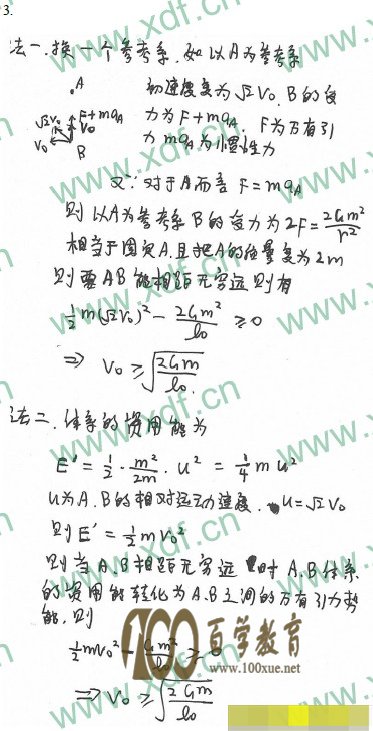 3.
法一.换一个参考系.如以A为参考系
初速度变为√2V₀.B的受
力为F+ma_A.F为万有引
力ma_A为惯性力
A
√2V₀ F+ma_A
V₀ V₀
B
又∵对于A而言F=ma_A
则以A为参考系B的受力为2F=2Gm²/r²
相当于固定A.且把A的质量变为2m
则要AB能相距无穷远则有
½m(√2V₀)²-2Gm²/l₀≥0
⇒V₀≥√(2Gm/l₀)
法二.体系的资用能为
E'=½·m²/2m·u²=¼mu²
u为A.B的相对运动速度.u=√2V₀
则E'=½mV₀²
则当A.B相距无穷远时A.B体系
的资用能转化为A.B之间的万有引力势
能.则
½mV₀²-Gm²/l₀≥0
⇒V₀≥√(2Gm/l₀)
www.xdf.cn
100百学教育
www.100xue.net